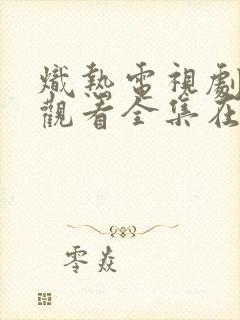 熾熱電視劇
觀看全集在
零焱